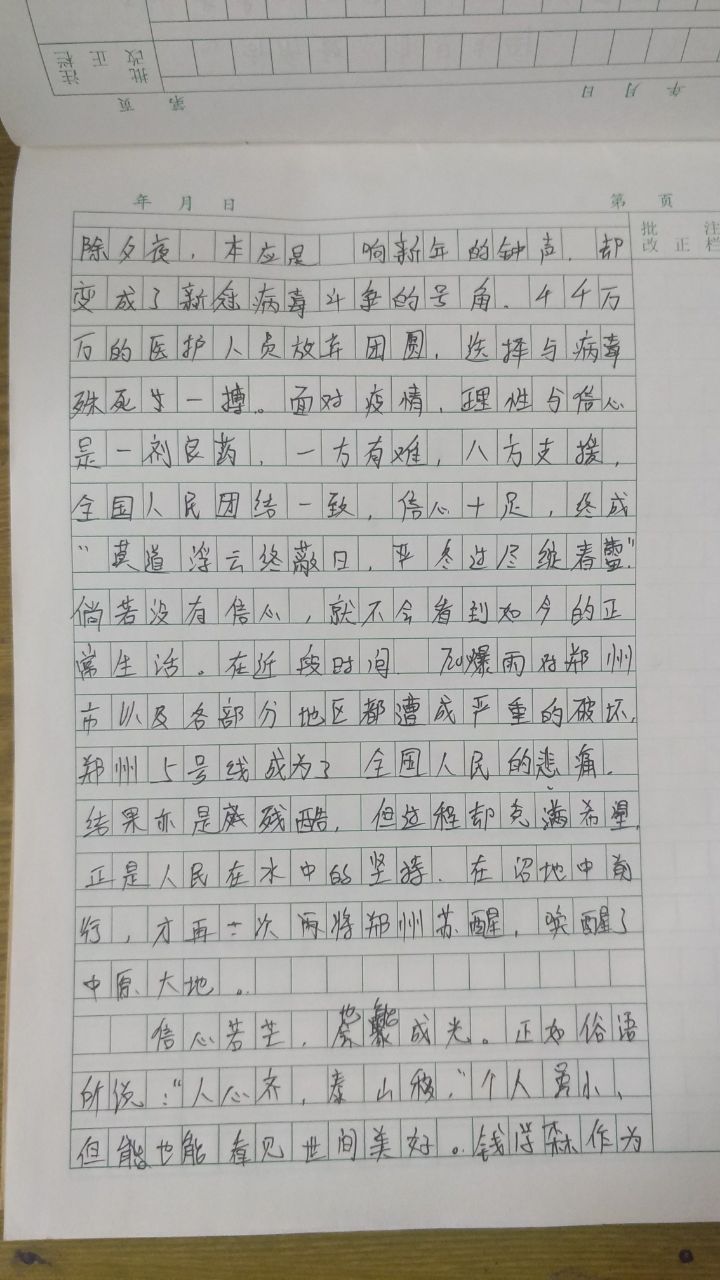 批 注
改 正 栏
第 页
年 月 日
年 月 日
第 页
批 注
改 正 栏
除夕夜，本应是 响新年的钟声，却
变成了新冠病毒斗争的号角。千千万
万的医护人员放弃团圆，选择与病毒
殊死生一搏。面对疫情，理性与信心
是一剂良药，一方有难，八方支援，
全国人民团结一致，信心十足，终成
“莫道浮云终蔽日，严冬过尽绽春蕾”
倘若没有信心，就不会看到如今的正
常生活。在近段时间 爆雨对郑州
市以及各部分地区都遭成严重的破坏，
郑州5号线成为了全国人民的悲痛。
结果亦是 残酷，但过程却充满希望，
正是人民在水中的坚持，在沼地中前
行，才再一次 将郑州苏醒，唤醒了
中原大地。
信心若芒， 也能 成光。正如俗语
所说：“人心齐，泰山移，”个人虽小，
但能也能看见世间美好。钱学森作为